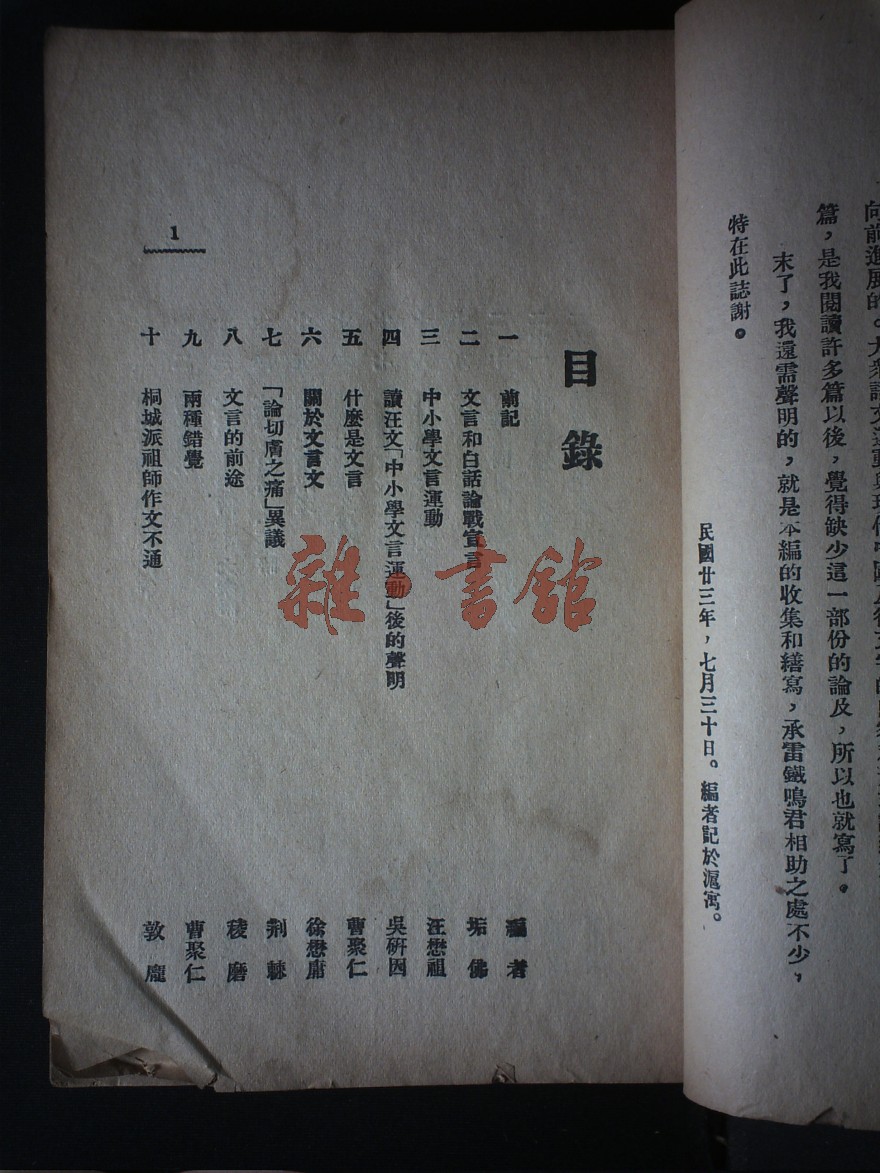 向前進展的。大衆語文運動與現代中國
篇，是我閱讀許多篇以後，覺得缺少這一部份的論及，所以也就寫了。
末了，我還需聲明的，就是本編的收集和繕寫，承雷鐵鳴君相助之處不少，
特在此誌謝。
民國廿三年，七月三十日。編者記於滬寓。
目錄
一 前記 編者
二 文言和白話論戰宣言 垢佛
三 中小學文言運動 汪懋祖
四 讀汪文「中小學文言運動」後的聲明 吳研因
五 什麼是文言 曹聚仁
六 關於文言文 徐懋庸
七 「論切膚之痛」異議 荆棘
八 文言的前途 稜磨
九 兩種錯覺 曹聚仁
十 桐城派祖師作文不通 敦龐
1
雜·書館